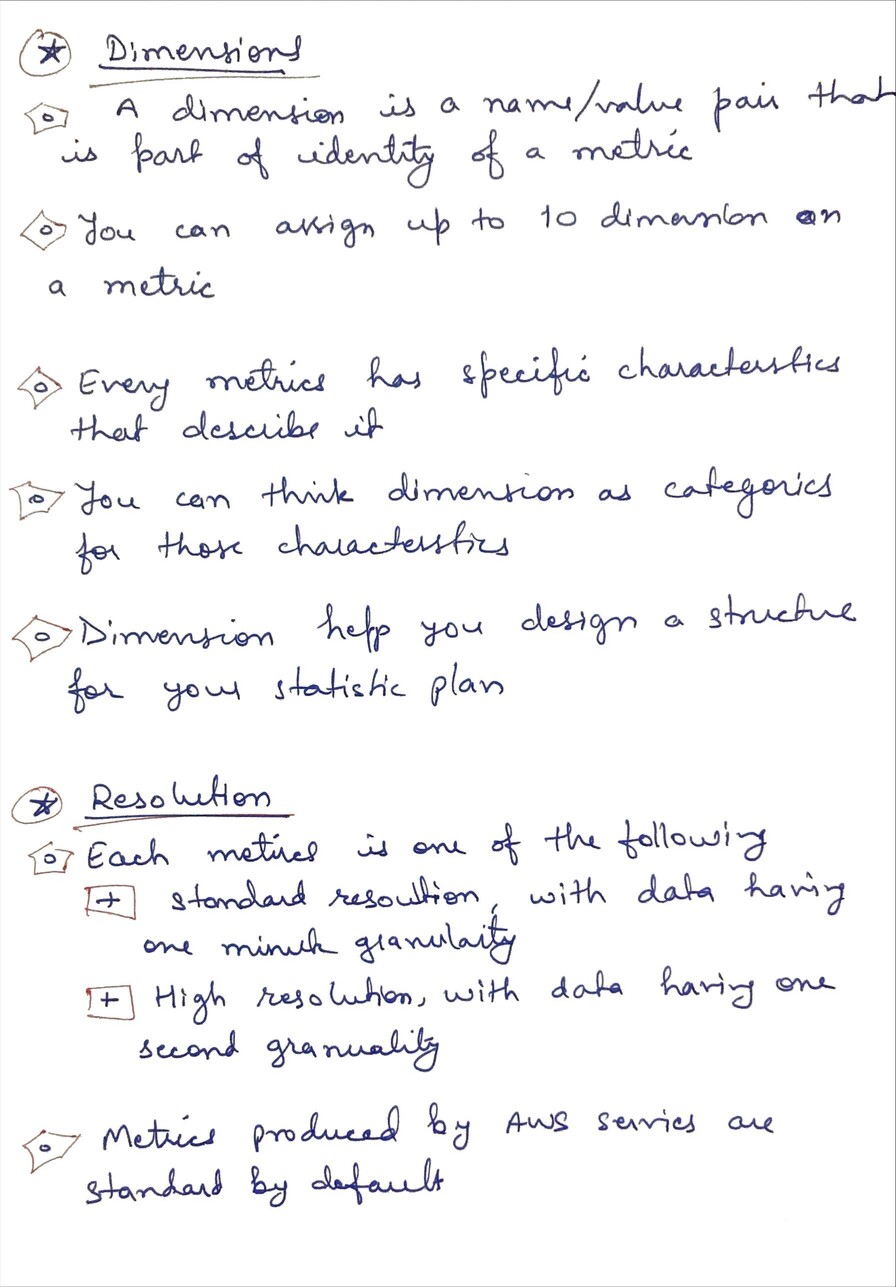 Dimensions
A dimension is a name/value pair that
is part of identity of a metric
You can assign up to 10 dimension on
a metric
Every metrics has specific characterstics
that describe it
You can think dimension as categories
for those characterstics
Dimension help you design a structure
for your statistic plan
Resolution
Each metrics is one of the following
+ standard resoultion, with data having
one minute granulaity
+ High resolution, with data having one
second granuality
Metrics produced by AWS servies are
standard by default